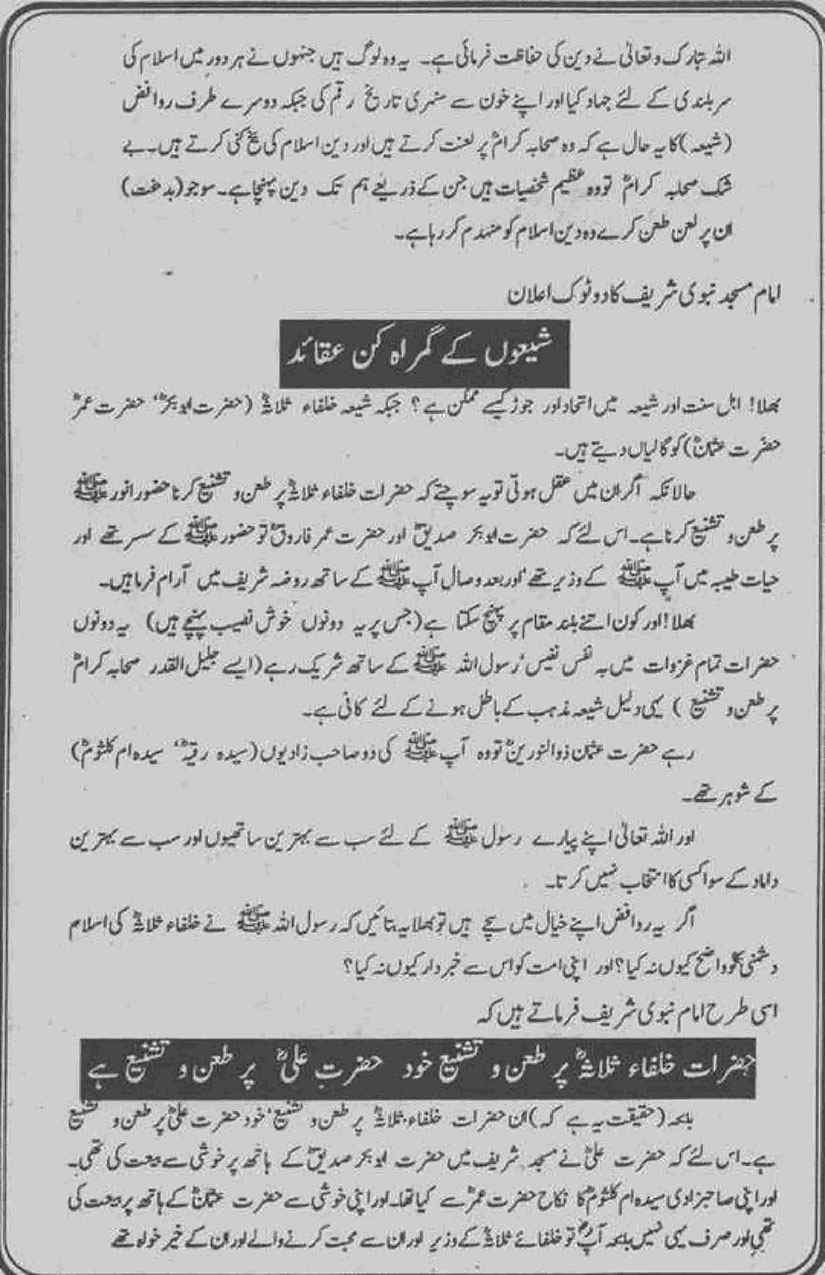 اللہ تبارک و تعالیٰ نے دین کی حفاظت فرمائی ہے۔ یہ وہ لوگ ہیں جنہوں نے ہر دور میں اسلام کی
سربلندی کے لئے جہاد کیا اور اپنے خون سے سنہری تاریخ رقم کی جبکہ دوسرے طرف روافض
(شیعہ) کا یہ حال ہے کہ وہ صحابہ کرامؓ پر لعنت کرتے ہیں اور دین اسلام کی بیخ کنی کرتے ہیں۔ بے
شک صحابہ کرامؓ تو وہ عظیم شخصیات ہیں جن کے ذریعے ہم تک دین پہنچا ہے۔ سو جو (بدبخت)
ان پر لعن طعن کرے وہ دین اسلام کو منہدم کر رہا ہے۔
امام مسجد نبوی شریف کا دو ٹوک اعلان
شیعوں کے گمراہ کن عقائد
بھلا! اہل سنت اور شیعہ میں اتحاد اور جوڑ کیسے ممکن ہے؟ جبکہ شیعہ خلفاء ثلاثہؓ (حضرت ابوبکرؓ، حضرت عمرؓ
حضرت عثمانؓ) کو گالیاں دیتے ہیں۔
حالانکہ اگر ان میں عقل ہوتی تو یہ سوچتے کہ حضرات خلفاء ثلاثہؓ پر طعن و تشنیع کرنا حضور انور ﷺ
پر طعن و تشنیع کرنا ہے۔ اس لئے کہ حضرت ابوبکر صدیقؓ اور حضرت عمر فاروقؓ تو حضور ﷺ کے سسر تھے اور
حیات طیبہ میں آپ ﷺ کے وزیر تھے، اور بعد وصال آپ ﷺ کے ساتھ روضہ شریف میں آرام فرما ہیں۔
بھلا! اور کون اتنے بلند مقام پر پہنچ سکتا ہے (جس پر یہ دونوں خوش نصیب پہنچے ہیں) یہ دونوں
حضرات تمام غزوات میں بہ نفس نفیس، رسول اللہ ﷺ کے ساتھ شریک رہے (ایسے جلیل القدر صحابہ کرامؓ
پر طعن و تشنیع) یہی دلیل شیعہ مذہب کے باطل ہونے کے لئے کافی ہے۔
رہے حضرت عثمان ذوالنورینؓ تو وہ آپ ﷺ کی دو صاحب زادیوں (سیدہ رقیہؓ، سیدہ ام کلثومؓ)
کے شوہر تھے۔
اور اللہ تعالیٰ اپنے پیارے رسول ﷺ کے لئے سب سے بہترین ساتھیوں اور سب سے بہترین
داماد کے سوا کسی کا انتخاب نہیں کرتا۔
اگر یہ روافض اپنے خیال میں سچے ہیں تو بھلا یہ بتائیں کہ رسول اللہ ﷺ نے خلفاء ثلاثہؓ کی اسلام
دشمنی کو واضح کیوں نہ کیا؟ اور اپنی امت کو اس سے خبردار کیوں نہ کیا؟
اسی طرح امام نبوی شریف فرماتے ہیں کہ
حضرات خلفاء ثلاثہؓ پر طعن و تشنیع خود حضرت علیؓ پر طعن و تشنیع ہے
بلکہ (حقیقت یہ ہے کہ) ان حضرات خلفاء ثلاثہؓ پر طعن و تشنیع، خود حضرت علیؓ پر طعن و تشنیع
ہے۔ اس لئے کہ حضرت علیؓ نے مسجد شریف میں حضرت ابوبکر صدیقؓ کے ہاتھ پر خوشی سے بیعت کی تھی۔
اور اپنی صاحبزادی سیدہ ام کلثومؓ کا نکاح حضرت عمرؓ سے کیا تھا۔ اور اپنی خوشی سے حضرت عثمانؓ کے ہاتھ پر بیعت کی
تھی اور صرف یہی نہیں بلکہ آپؓ تو خلفائے ثلاثہؓ کے وزیر اور ان سے محبت کرنے والے اور ان کے خیر خواہ تھے